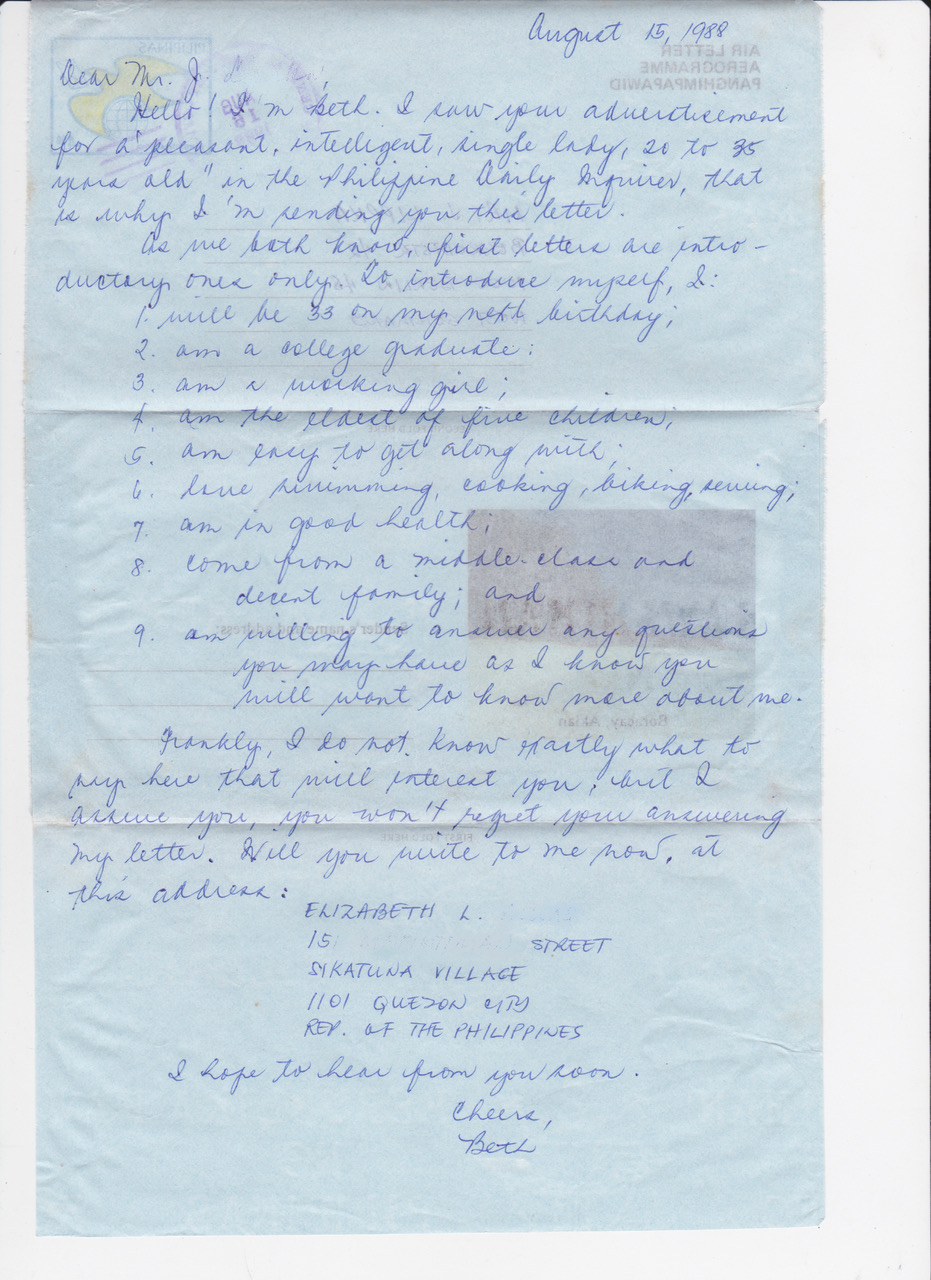 August 15, 1988
AIR LETTER
AEROGRAMME
PANGHIMPAPAWID
PILIPINAS
Dear Mr. J.
Hello! I'm Beth. I saw your advertisement
for a "pleasant, intelligent, single lady, 20 to 35
years old" in the Philippine Daily Inquirer, that
is why I'm sending you this letter.
As we both know, first letters are intro-
ductory ones only. To introduce myself, I:
1. will be 33 on my next birthday;
2. am a college graduate;
3. am a working girl;
4. am the eldest of five children;
5. am easy to get along with;
6. love swimming, cooking, biking, sewing;
7. am in good health;
8. come from a middle-class and
decent family; and
9. am willing to answer any questions
you may have as I know you
will want to know more about me.
Sender's name and address:
Boracay, Aklan
Frankly, I do not know exactly what to
say here that will interest you, but I
assure you, you won't regret your answering
my letter. Will you write to me now, at
FIRST FOLD HERE
this address:
ELIZABETH L.
15
STREET
SIKATUNA VILLAGE
1101 QUEZON CITY
REP. OF THE PHILIPPINES
I hope to hear from you soon.
Cheers,
Beth